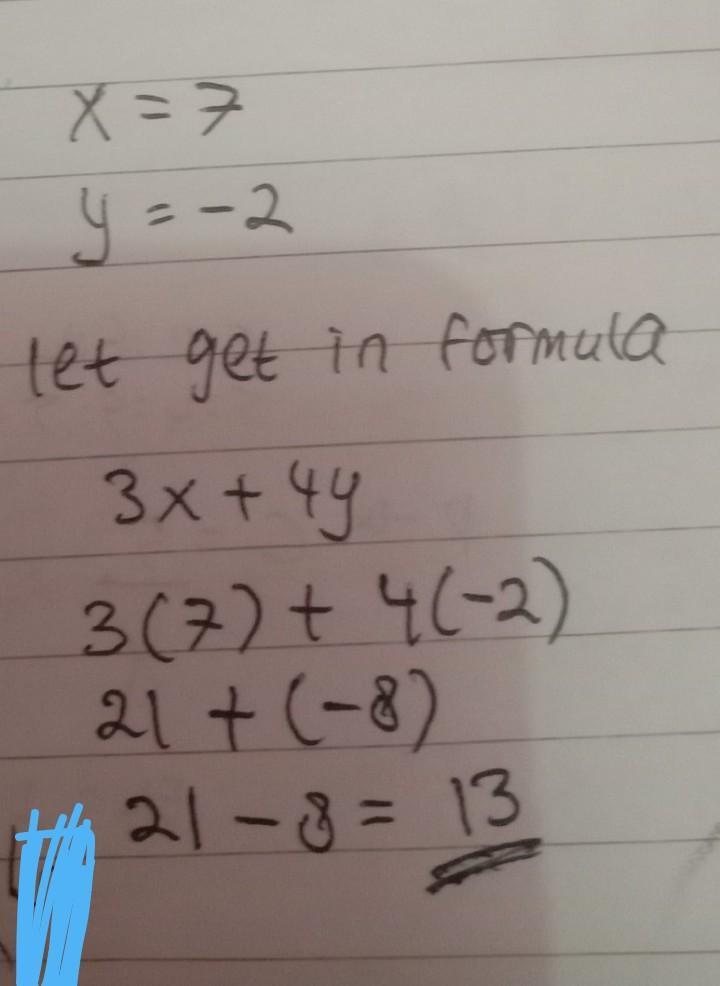 x = 7
y = -2
let get in formula
3x + 4y
3(7) + 4(-2)
21 + (-8)
21 - 8 = 13